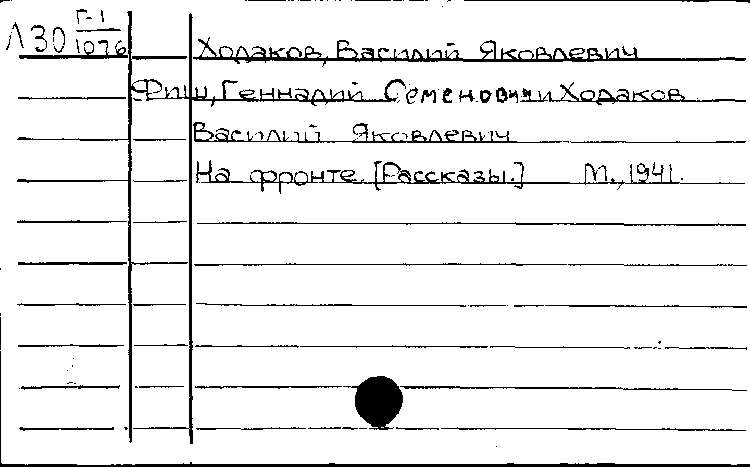 Л30 Г-1/1076
Ходаков, Василий Яковлевич
Фиш, Геннадий Семенович и Ходаков
Василий Яковлевич
На фронте. [Рассказы.] М., 1941.